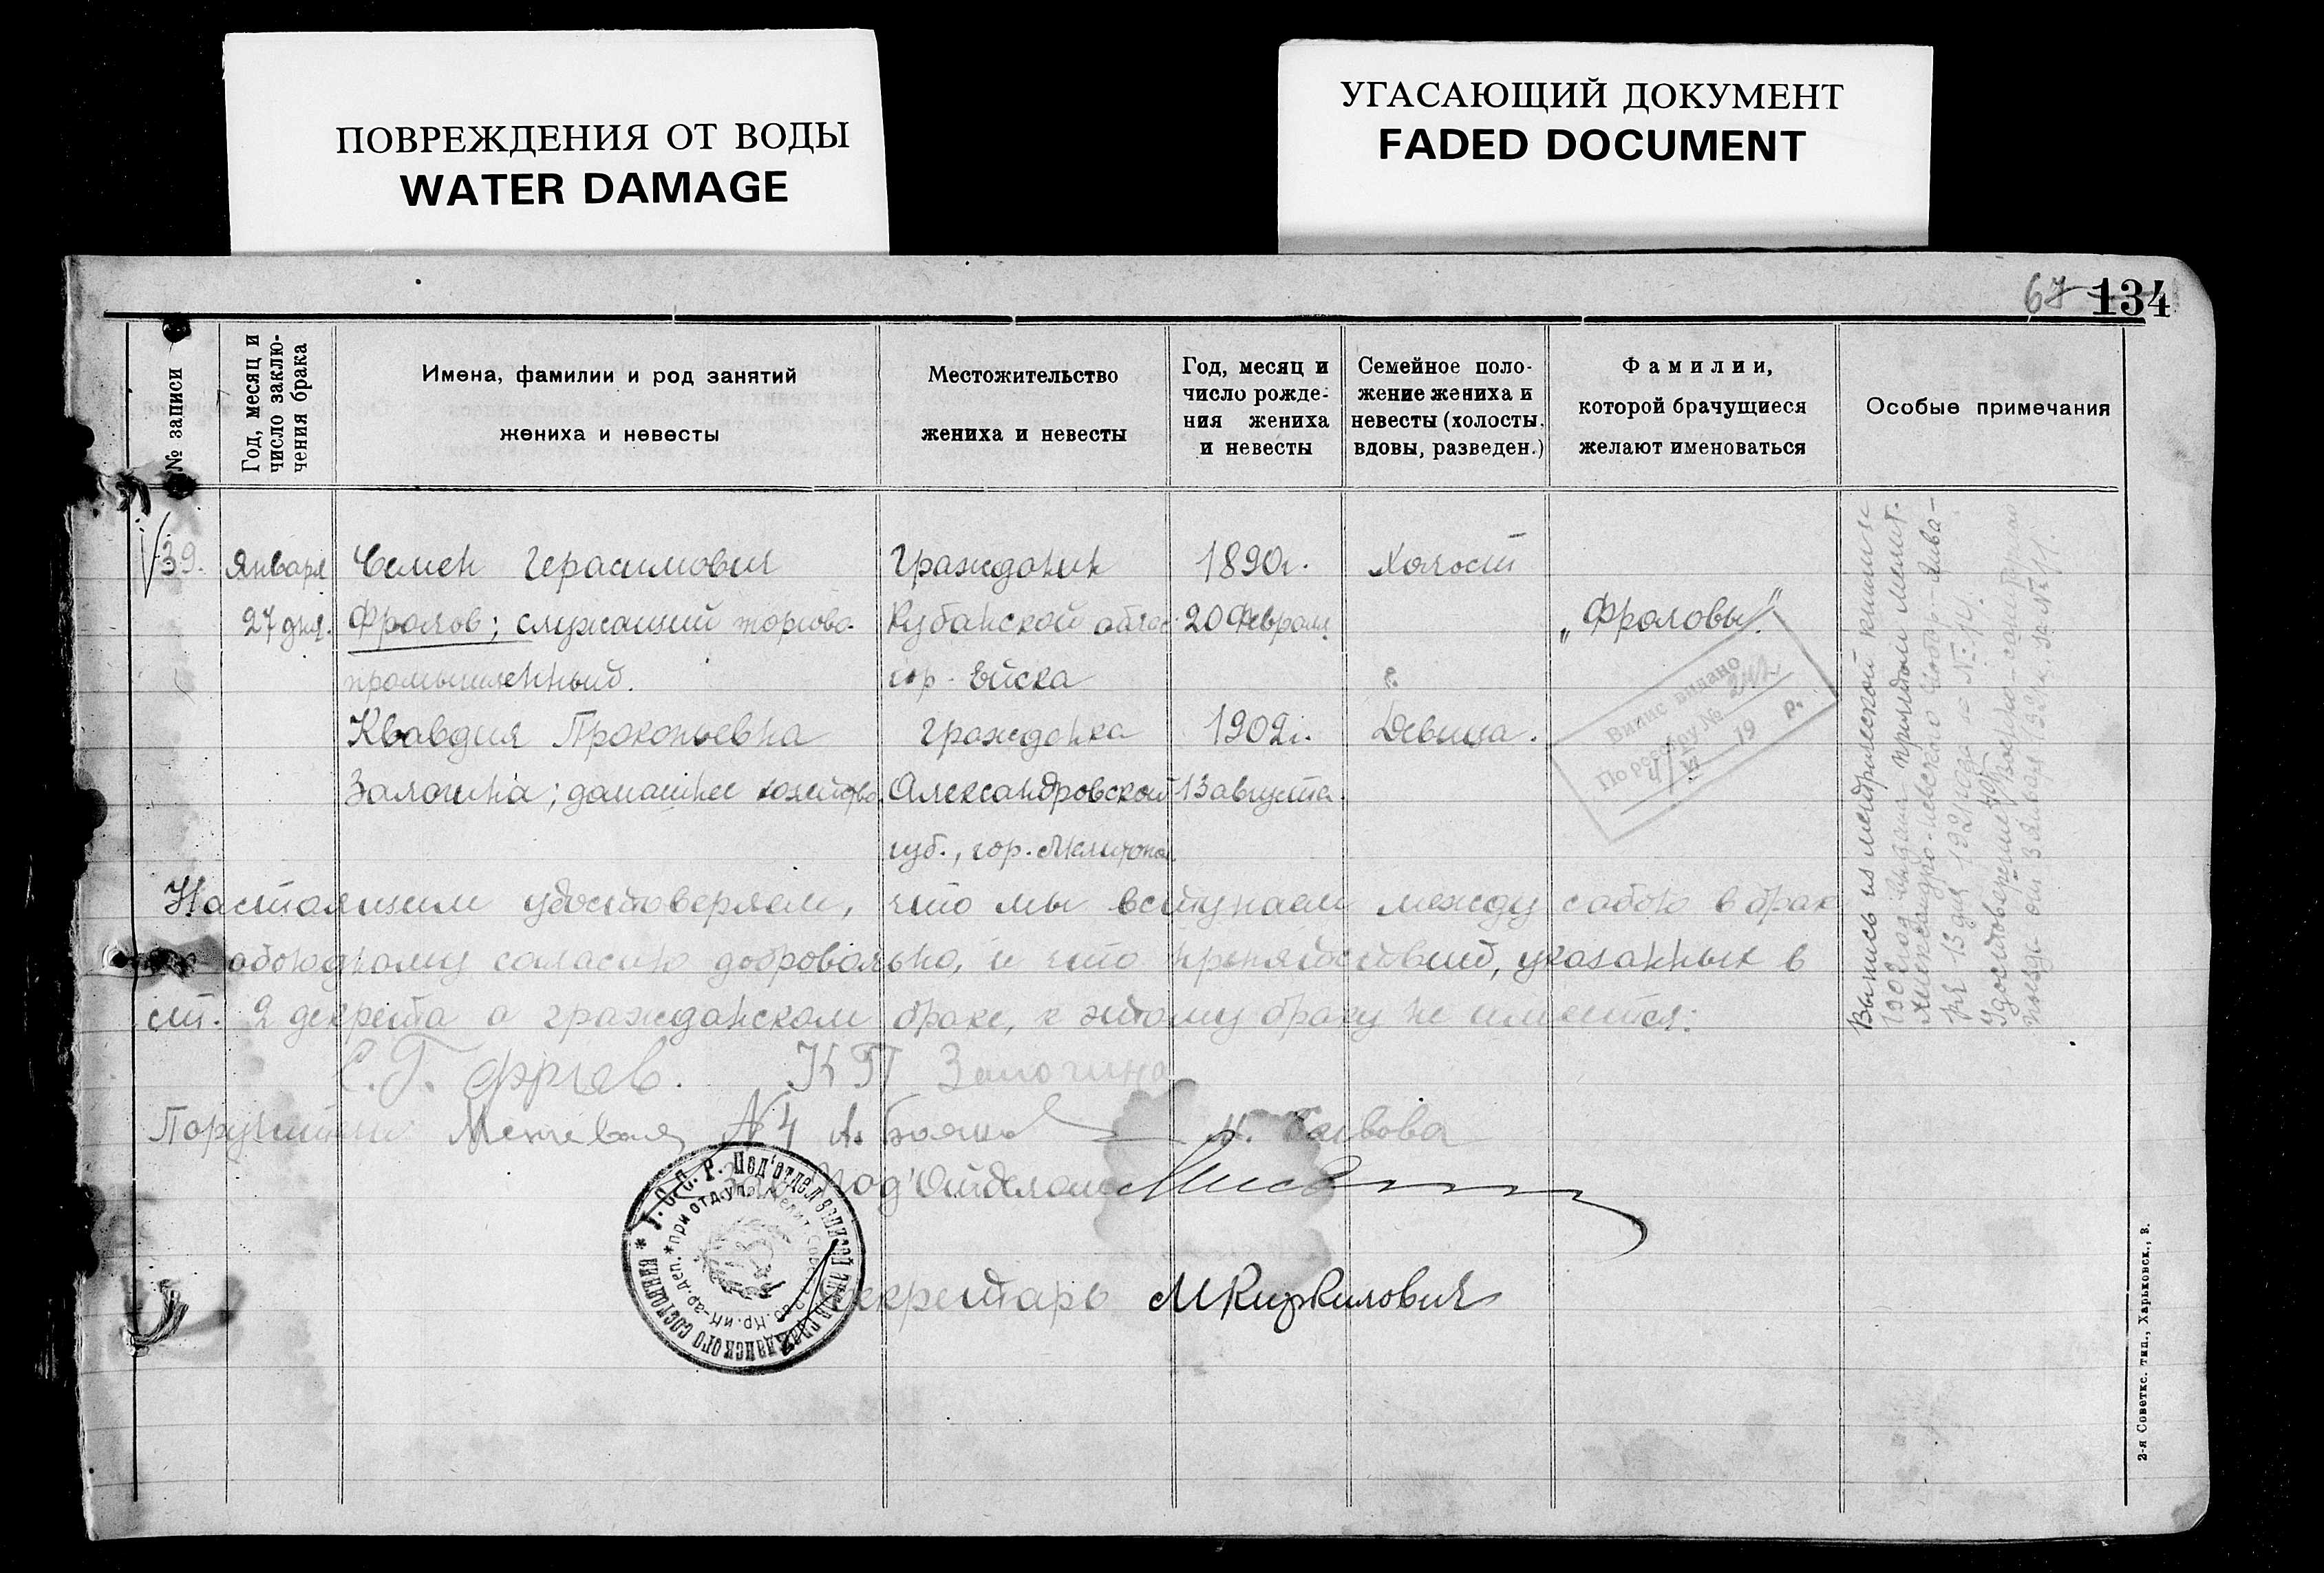 ПОВРЕЖДЕНИЯ ОТ ВОДЫ
WATER DAMAGE
УГАСАЮЩИЙ ДОКУМЕНТ
FADED DOCUMENT
67 134
№ записи
Год, месяц и
число заклю-
чения брака
Имена, фамилии и род занятий
жениха и невесты
Местожительство
жениха и невесты
Год, месяц и
число рожде-
ния жениха
и невесты
Семейное поло-
жение жениха и
невесты (холосты,
вдовы, разведен.)
Фамилии,
которой брачущиеся
желают именоваться
Особые примечания
39.
Января
27 дня.
Семен Герасимович
Фролов; служащий торгово-
промышленный.
Клавдия Прокопьевна
Залогина; домашнее хозяйство.
Гражданин
Кубанской облас.
гор. Ейска
гражданка
Александровской
губ., гор. Мелитопол.
1890г.
20 Февраля
1902г.
13 августа.
Холост
Девица.
„Фроловы".
Випис видано
По реєстру №
19 р.
Выпись из метрической книги за
1902 год выдана причтом Мелит.
Александро-Невского Собора - янва-
ря 13 дня 1921 года за № 14.
Удостоверение
от 3 января 1921г. за №
Настоящим удостоверяем, что мы вступаем между собою в брак
обоюдному согласию добровольно, и что препятствий, указанных в
ст. 2 декрета о гражданском браке, к этому браку не имеется:
С. Г. Фролов. К П Залогина
Поручители
Зав. Под'Отделом
У. С. С. Р. Под'отдел записей актов гражданского состояния
Секретарь МКиркилович
2-я Советкс. тип., Харьковск., 3.